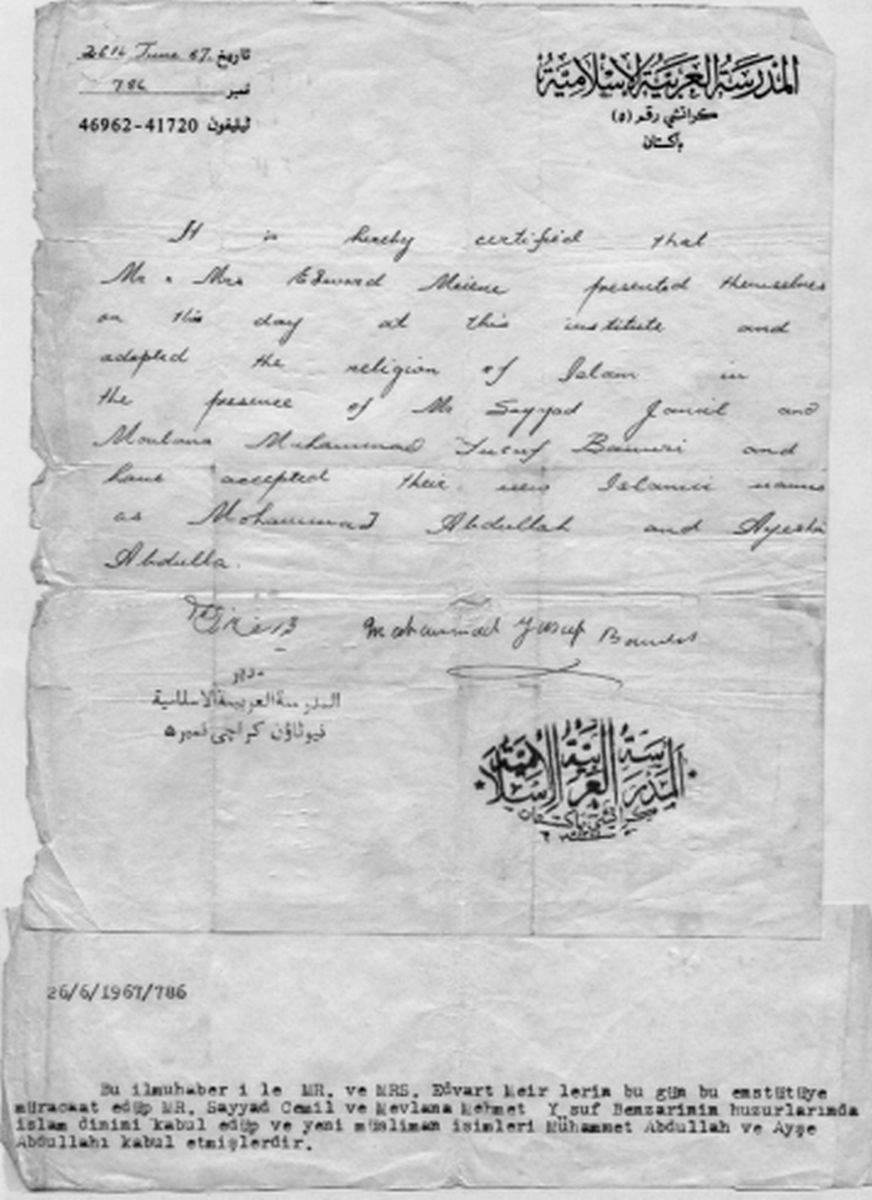 26th June 67. تاريخ
786 نمبر
46962-41720 ٹیلیفون
المدرسة العربية الإسلامية
كراتشي رقم (٥)
باكستان
It is hereby certified that
Mr & Mrs Edward presented themselves
on this day at this institute and
adopted the religion of Islam in
the presence of Mr Sayyad Jamil and
Moulana Muhammad Yusuf and
have accepted their new Islamic names
as Mohammad Abdullah and Ayesha
Abdulla.
Mohammad Yusuf
مدير
المدرسة العربية الاسلامية
نیوٹاؤن کراچی نمبر ۵
المدرسة العربية الإسلامية
كراتشي باكستان
26/6/1967/786
Bu ilmuhaber i le MR. ve MRS. Edvart Meir lerin bu gün bu enstütüye
müracaat edüp MR. Sayyad Cemil ve Mevlana Mehmet Y suf Benzarinin huzurlarında
islam dinini kabul edüp ve yeni müsliman isimleri Mühammet Abdullah ve Ayşe
Abdullahı kabul etmişlerdir.